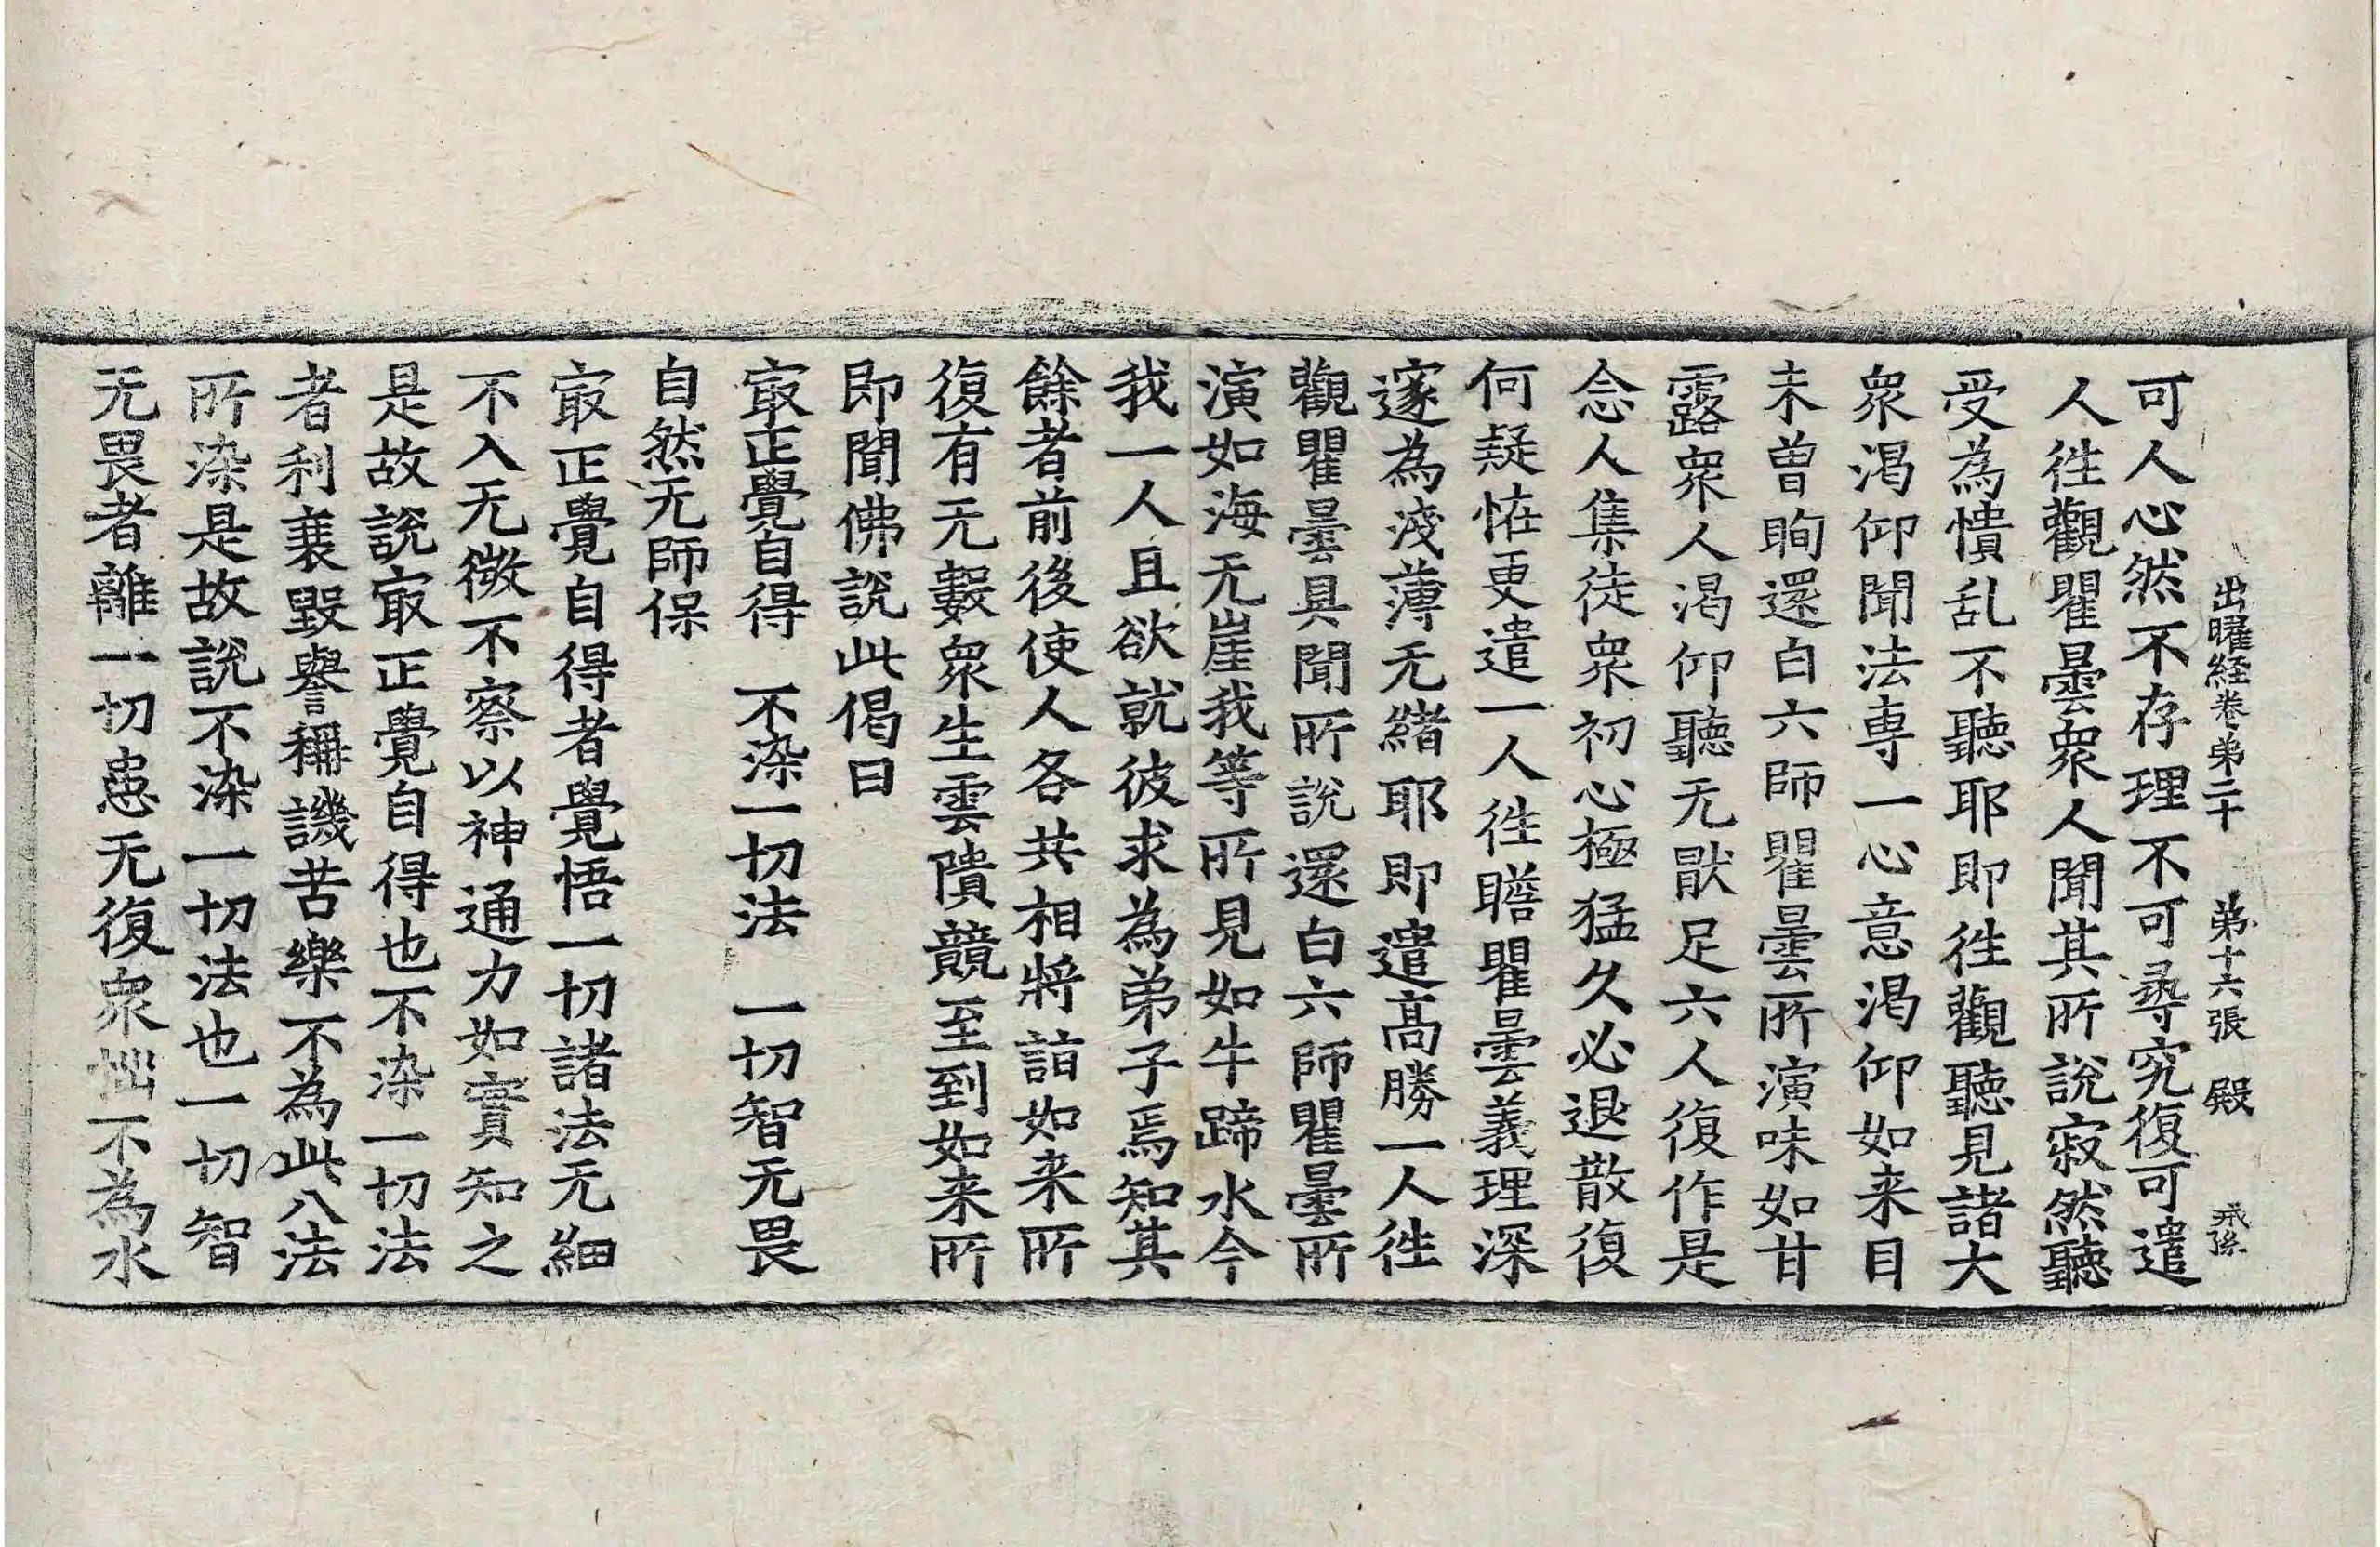 出曜経卷苐二十 苐十六張 殿
可人心然不存理不可尋究復可遣
人徃觀瞿曇衆人聞其所說寂然聽
受為憒乱不聽耶即徃觀聽見諸大
衆渴仰聞法専一心意渴仰如来目
未曾眴還白六師瞿曇所演味如甘
露衆人渴仰聽无猒足六人復作是
念人集徒衆初心極猛久必退散復
何疑恠更遣一人徃瞻瞿曇義理深
邃為淺薄无緒耶即遣髙勝一人徃
觀瞿曇具聞所說還白六師瞿曇所
演如海无崖我等所見如牛蹄水今
我一人且欲就彼求為弟子焉知其
餘者前後使人各共相將詣如来所
復有无數衆生雲隤競至到如来所
即聞佛說此偈曰
㝡正覺自得 不染一切法 一切智无畏
自然无師保
㝡正覺自得者覺悟一切諸法无細
不入无微不察以神通力如實知之
是故說㝡正覺自得也不染一切法
者利衰毀譽稱譏苦樂不為此八法
所染是故說不染一切法也一切智
无畏者離一切患无復衆惱不為水